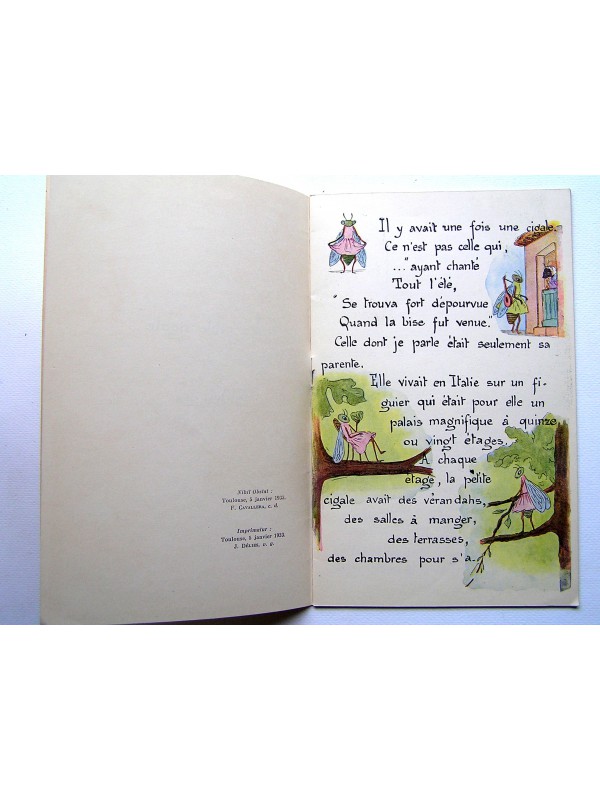 Nihil Obstat :
Toulouse, 5 janvier 1935.
F. CAVALLERA, c. d.
Imprimatur :
Toulouse, 5 janvier
J. DÉLIES, v. g.
Il y avait une fois une cigale.
Ce n'est pas celle qui,
..."ayant chanté
Tout l'été,
"Se trouva fort dépourvue
Quand la bise fut venue."
Celle dont je parle était seulement sa
parente.
Elle vivait en Italie sur un fi-
guier qui était pour elle un
palais magnifique à quinze
ou vingt étages.
A chaque
étage, la petite
cigale avait des vérandahs,
des salles à manger,
des terrasses,
des chambres pour s'a-